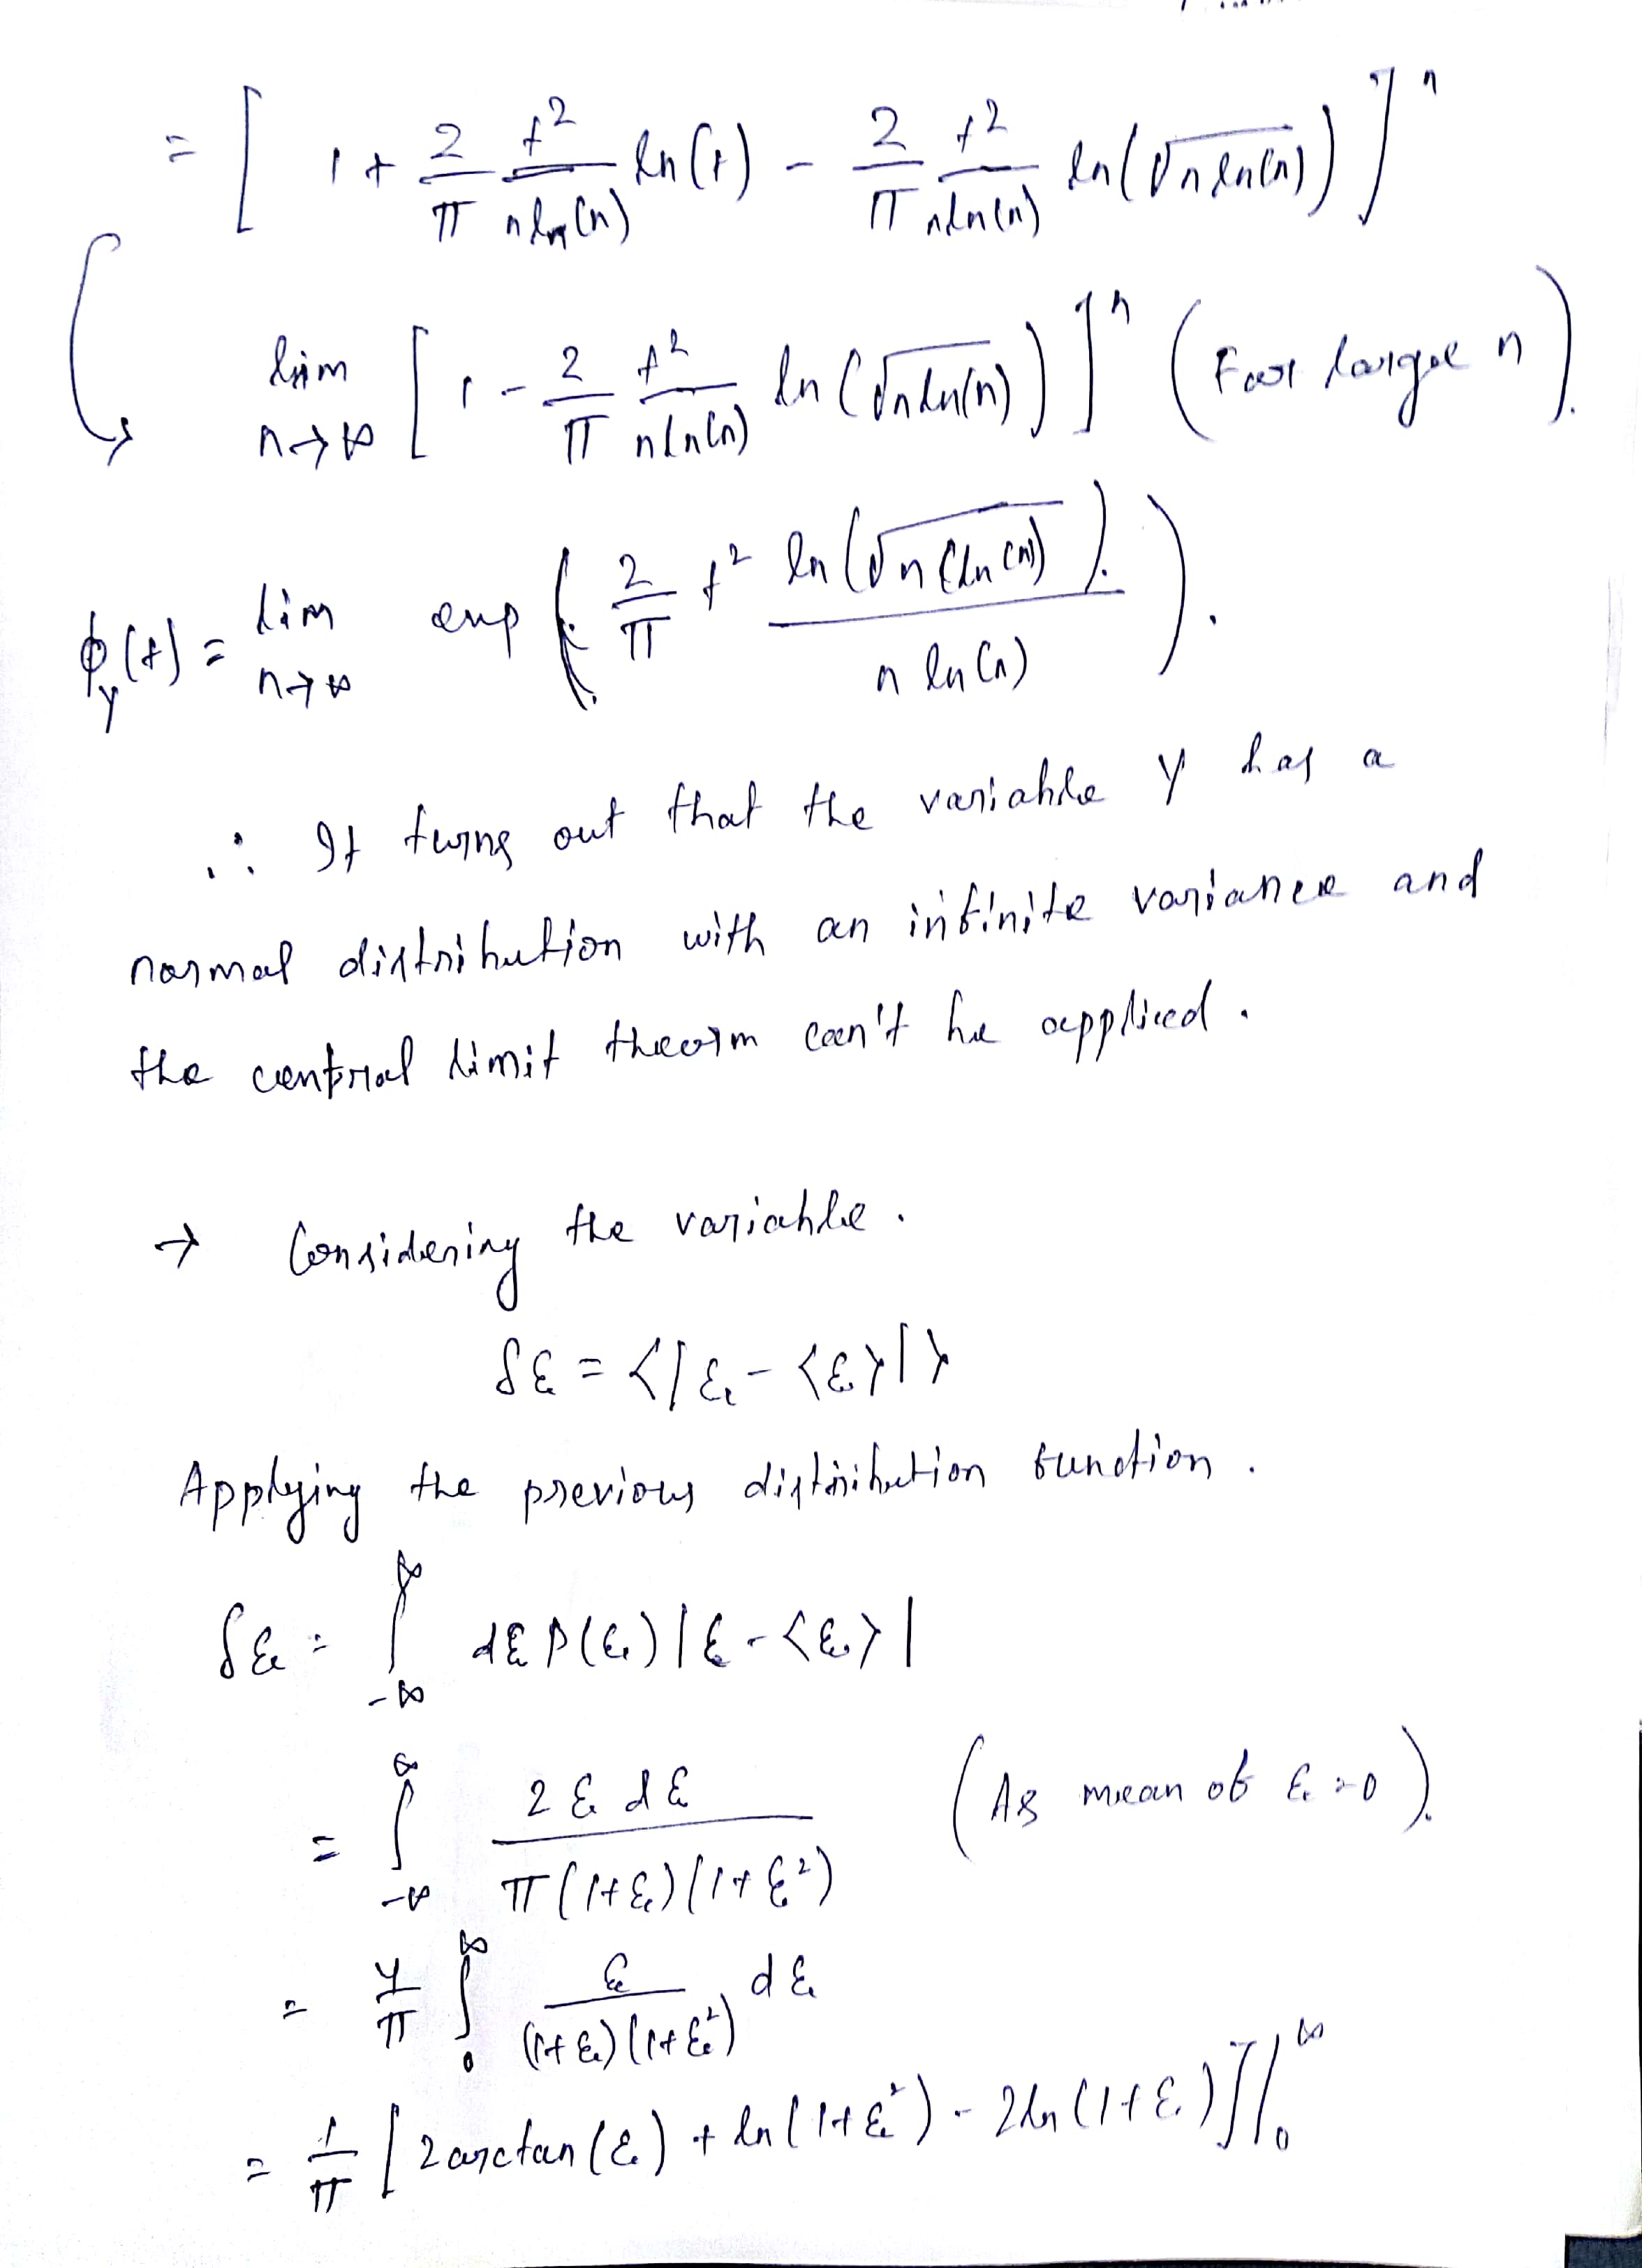 = [ 1 + 2/π t²/(n ln(n)) ln(t) - 2/π t²/(n ln(n)) ln(√(n ln(n))) ]ⁿ
lim n→∞ [ 1 - 2/π t²/(n ln(n)) ln(√(n ln(n))) ]ⁿ (For large n).
ϕ_y(t) = lim n→∞ exp( 2/π t² ln(√(n(ln(n)))/(n ln(n)) ).
∴ It turns out that the variable y has a
normal distribution with an infinite variance and
the central limit theorm can't be applied.
→ Considering the variable.
δε = <|ε - <ε>|>
Applying the previous distribution function.
δε = ∫_{-∞}^{∞} dε P(ε) |ε - <ε>|
= ∫_{-∞}^{∞} 2ε dε/(π(1+ε)(1+ε²)) (As mean of ε = 0).
= 4/π ∫_0^∞ ε/((1+ε)(1+ε²)) dε
= 1/π [2arctan(ε) + ln(1+ε²) - 2ln(1+ε)]|_0^∞